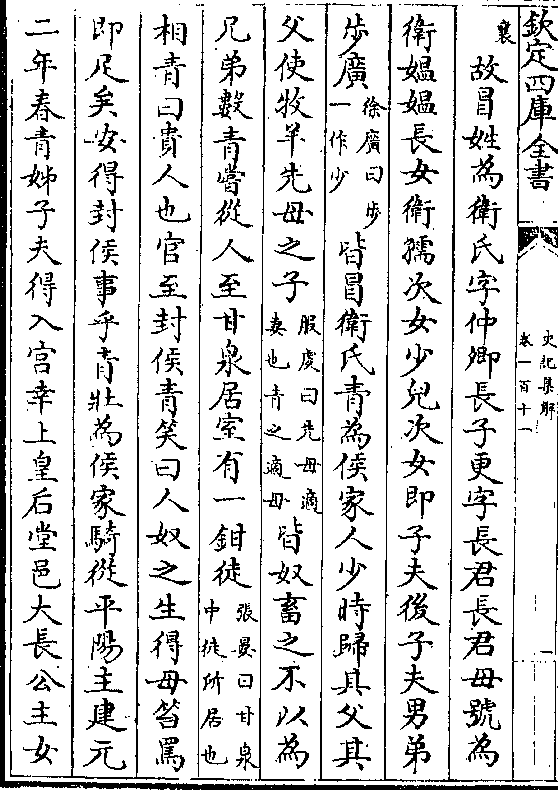 欽定四庫全書
史記集解
卷一百十一
一
襄
故冒姓為衛氏字仲卿長子更字長君長君母號為
衛媪媪長女衛孺次女少兒次女即子夫後子夫男弟
步廣徐廣曰步一作少皆冒衛氏青為侯家人少時歸其父其
父使牧羊先母之子服虔曰先母適妻也青之適母皆奴畜之不以為
兄弟數青嘗從人至甘泉居室有一鉗徒張晏曰甘泉中徒所居也
相青曰貴人也官至封侯青笑曰人奴之生得毋笞罵
即足矣安得封侯事乎青壯為侯家騎從平陽主建元
二年春青姊子夫得入宫幸上皇后堂邑大長公主女